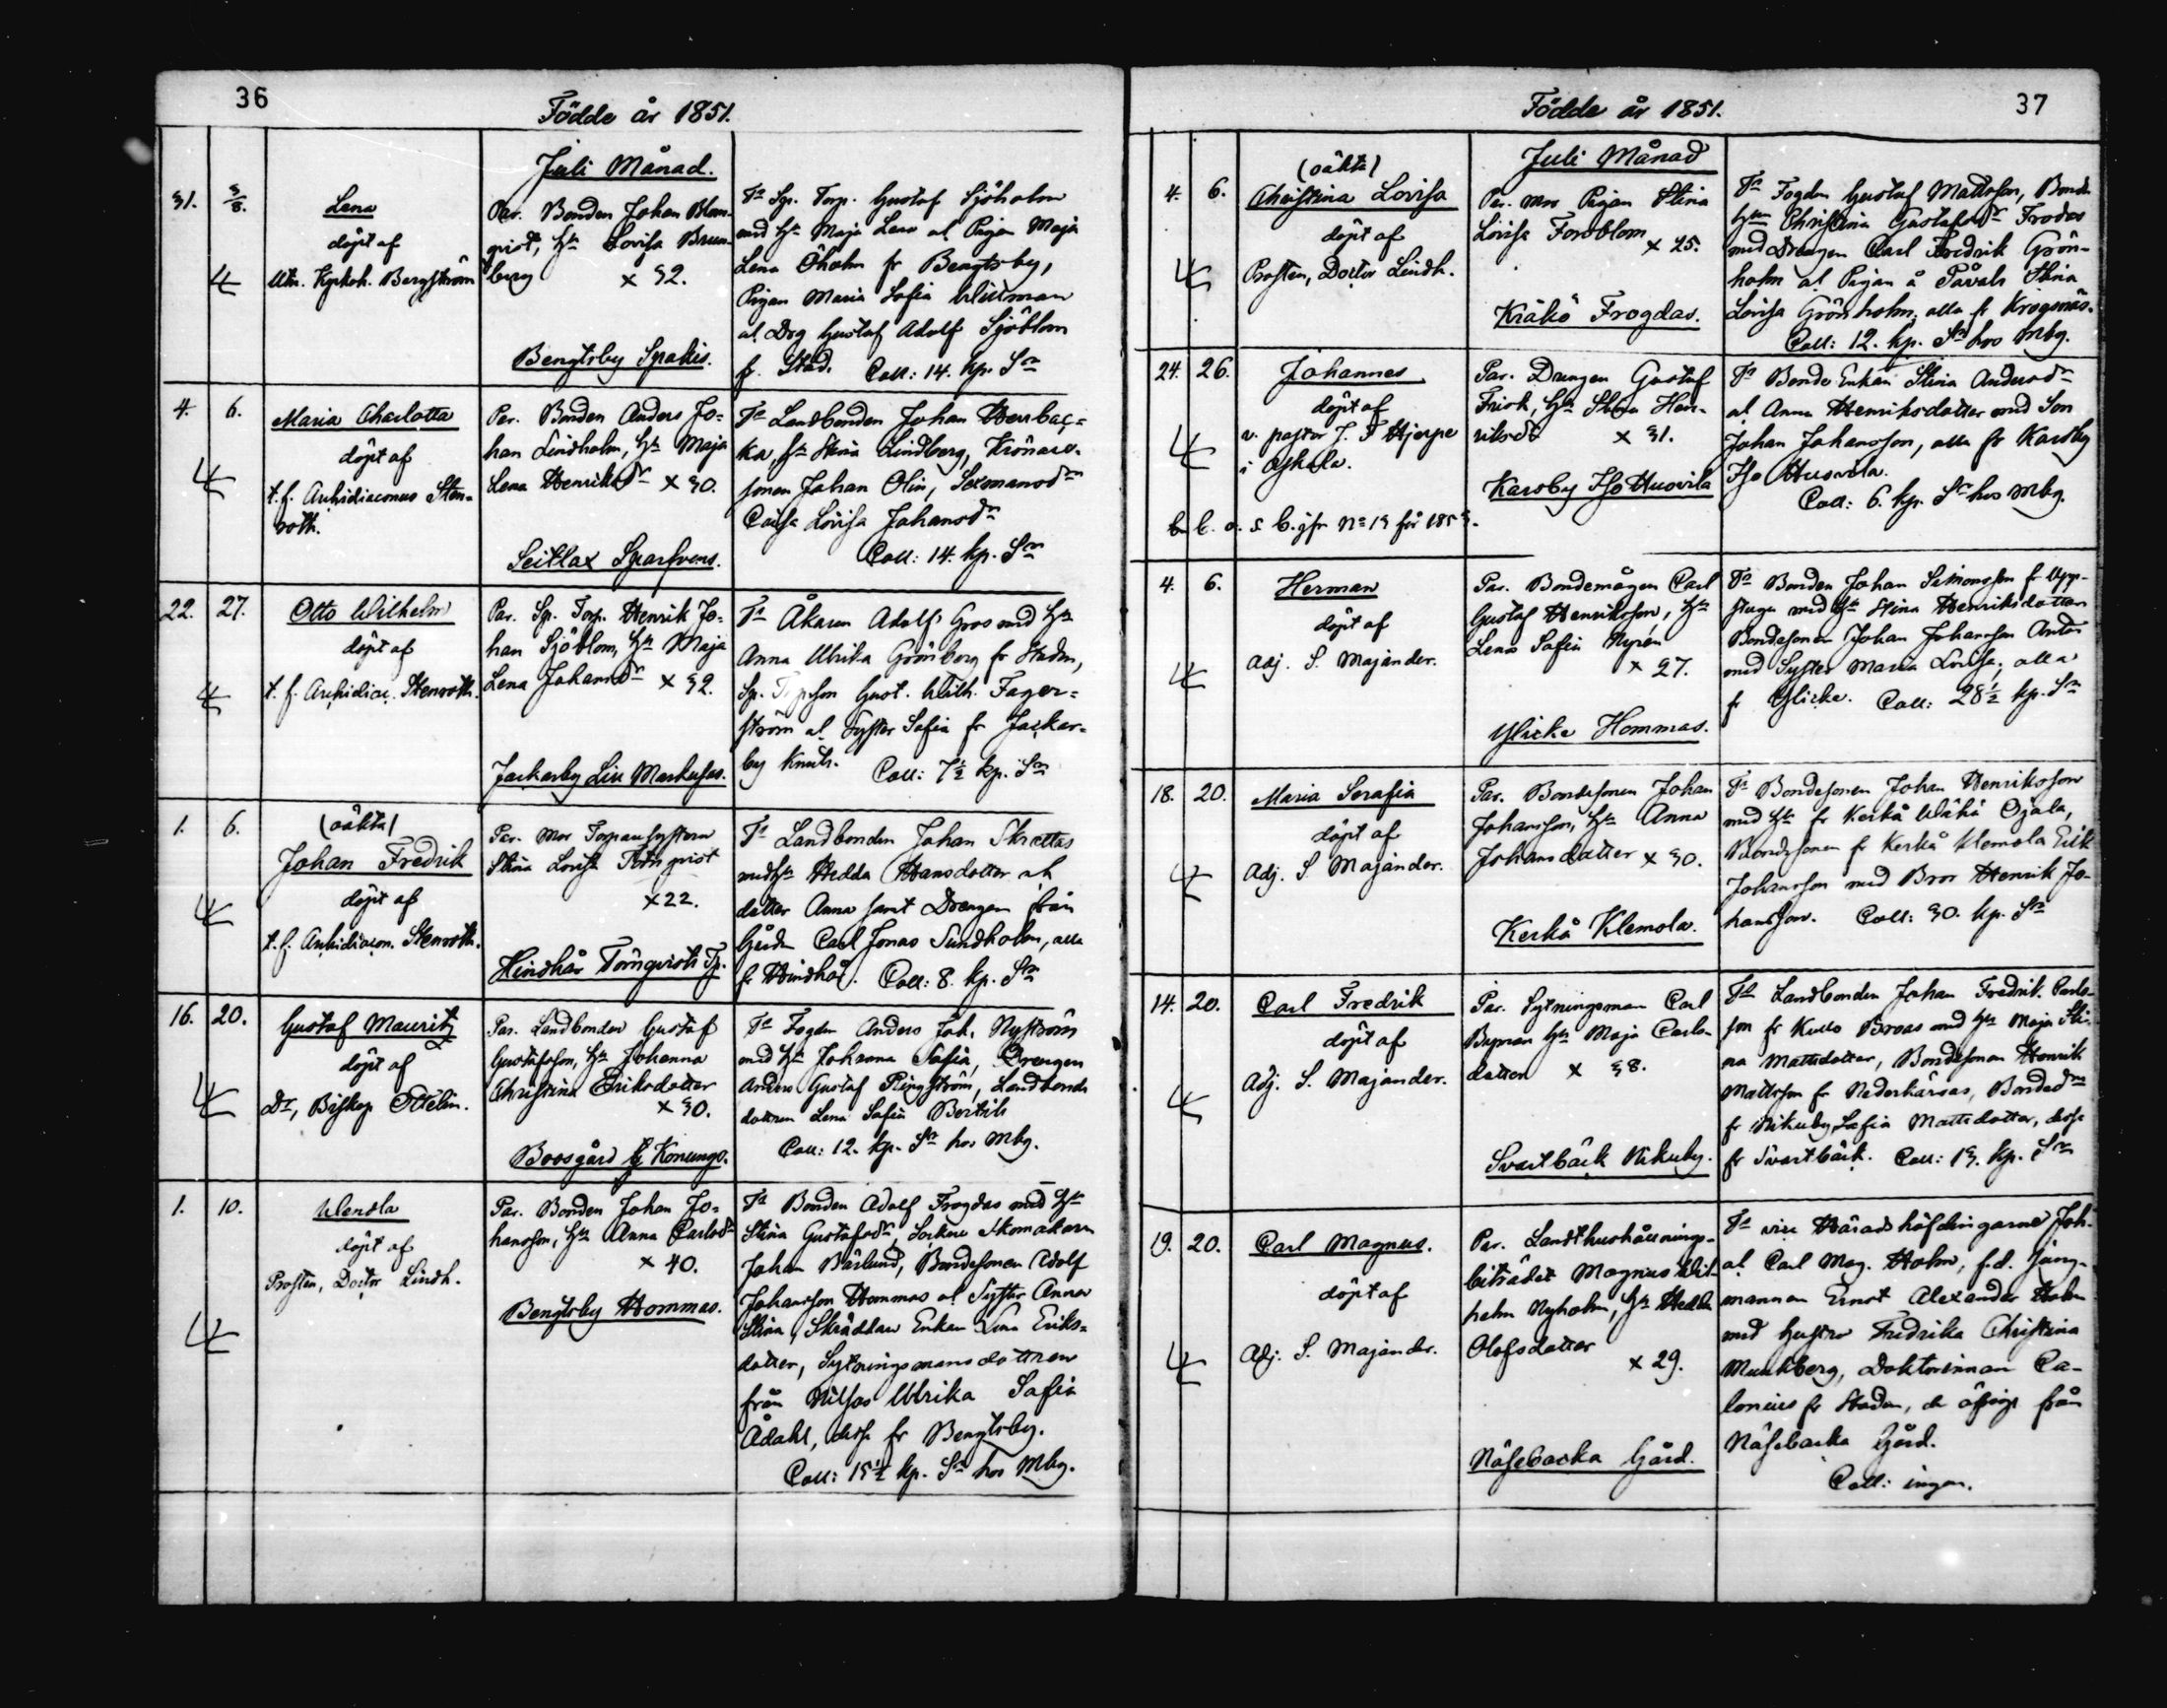 36
Födde år 1851.
Juli Månad.
31. 3/8.
Lena
döpt af
Utn. Kyrkoh. Bergström
Par. Bonden Johan Blom-
qvist, Hu Lovisa Brun-
berg × 32.
Bengtsby Spakis.
Fa Sp. Torp. Gustaf Sjöholm
med Hu Maja Lena al Pigan Maja
Lena Öholm fr Bengtsby,
Pigan Maria Sofia
al Drg Gustaf Adolf Sjöblom
fr. Stad. Coll: 14. kp. Sr
4. 6.
Maria Charlotta
döpt af
t.f. Archidiaconus Sten-
roth.
Par. Bonden Anders Jo-
han Lindholm, Hu Maja
Lena Henriksdr × 30.
Seitlax Sparfvens.
Fa Landbonden Johan Herrbac-
ka, Hu Stina Lindberg, Krönare-
sonen Johan Olin, Sexmansdr
Caisa Lovisa Johansdr
Coll: 14. kp. Sr
22. 27.
Otto Wilhelm
döpt af
t.f. Archidiac. Stenroth.
Par. Sp. Torp. Henrik Jo-
han Sjöblom, Hu Maja
Lena Johansdr × 32.
Jackarby Lill Markusas.
Fa Åkaren Adolf Gros med Hu
Anna Ulrika Grönberg fr Staden,
Sp. Gust. Wilh. Fager-
ström al Syster Sofia fr Jackar-
by Knuts. Coll: 7½ kp. Sr
1. 6.
(oäkta)
Johan Fredrik
döpt af
t.f. Archidiacon. Stenroth.
Par. mor Torparesystern
Stina Lovisa Törnqvist
× 22.
Hindhår Törnqvists Tp.
Fa Landbonden Johan Skrattas
med Hu Hedda Hansdotter al
dotter Anna samt Drengen från
Gården Carl Jonas Sundholm, alla
fr Hindhår. Coll: 8. kp. Sr
16. 20.
Gustaf Mauritz
döpt af
Dr, Biskop Ottelin.
Par. Landbonden Gustaf
Gustafsson, Hu Johanna
Christina Eriksdotter
× 30.
Boesgård Konungs.
Fa Fogden Anders Joh. Nyström
med Hu Johanna Sofia, Drengen
Anders Gustaf Ringström, Landbonde
dottren Lena Sofia Bertils
Coll: 12. kp. Sr hos Mbg.
1. 10.
Wendla
döpt af
Prosten, Doctor Lindh.
Par. Bonden Johan Jo-
hansson, Hu Anna Carlsdr
× 40.
Bengtsby Hommas.
Fa Bonden Adolf Frogdas med Hu
Stina Gustafsdr, Sockne Skomakaren
Johan Bärlund, Bondesonen Adolf
Johansson Hommas al Syster Anna
Stina, Skräddare Enkan Lena Eriks-
dotter, Sytningsmans dottren
från Nilsas Ulrika Sofia
Ådahl, desse fr Bengtsby.
Coll: 15½ kp. Sr hos Mbg.
37
Födde år 1851.
Juli Månad
4. 6.
(oäkta)
Christina Lovisa
döpt af
Prosten, Doctor Lindh.
Par. mor Pigan Stina
Lovisa Forsblom
× 25.
Kråkö Frogdas.
Fa Fogden Gustaf Mattsson, Bonde
Hun Christina Gustafsdr Frodas
med Drengen Carl Fredrik Grön-
holm al Pigan å Påvals Stina
Lovisa Grönholm, alla fr Krogsnäs.
Coll: 12. kp. Sr hos Mbg.
24. 26.
Johannes
döpt af
v. pastor J. F Hjerpe
i Askola.
Par. Drengen Gustaf
Frisk, Hu Stina Hen-
riksdr × 31.
Karsby Iso Husvila
b. b. o. s. b. jfr No 13 för 1853.
Fa Bonde Enkan Stina Andersdr
al Anna Henriksdotter med Son
Johan Johansson, alla fr Karsby
Iso Husvila.
Coll: 6. kp. Sr hos Mbg.
4. 6.
Herman
döpt af
Adj. S. Majander.
Par. Bondemågen Carl
Gustaf Henriksson, Hu
Lena Sofia Nyrén
× 27.
Ylicke Hommas.
Fa Bonden Johan Simonsson fr Upp-
stuga med Hu Stina Henriksdotter
Bondesonen Johan Johansson Anders
med Syster Maria Lovisa, alla
fr Ylicke. Coll: 28½ kp. Sr
18. 20.
Maria Serafia
döpt af
Adj. S. Majander.
Par. Bondesonen Johan
Johansson, Hu Anna
Johansdotter × 30.
Kerkå Klemola.
Fa Bondesonen Johan Henriksson
med Hu fr Kerkå Wähä Ojala,
Bondesonen fr Kerkå Klemola Erik
Johansson med Bror Henrik Jo-
hansson. Coll: 30. kp. Sr
14. 20.
Carl Fredrik
döpt af
Adj. S. Majander.
Par. Sytningsman Carl
Byman Hu Maja Carls-
dotter × 38.
Svartbäck Nikuby.
Fa Landbonden Johan Fredrik Carls-
son fr Kullo Broas med Hu Maja Sti-
na Mattsdotter, Bondesonen Henrik
Mattsson fr Nederhärsas, Bondedr
fr Nikuby Sofia Mattsdotter, desse
fr Svartbäck. Coll: 13. kp. Sr
19. 20.
Carl Magnus.
döpt af
Adj. S. Majander.
Par. Landthushållnings-
biträdet Magnus Wil-
helm Nyholm, Hu Hedda
Olofsdotter
× 29.
Näsebacka Gård.
Fa vice Häradshöfdingarne Joh.
al Carl Mag. Holm, f.d. Jung-
mannen Ernst Alexander Holm
med Hustru Fredrika Christina
Munkberg, Doktorinnan Ca-
lonius fr Staden, de öfriga från
Näsebacka Gård.
Coll: ingen.